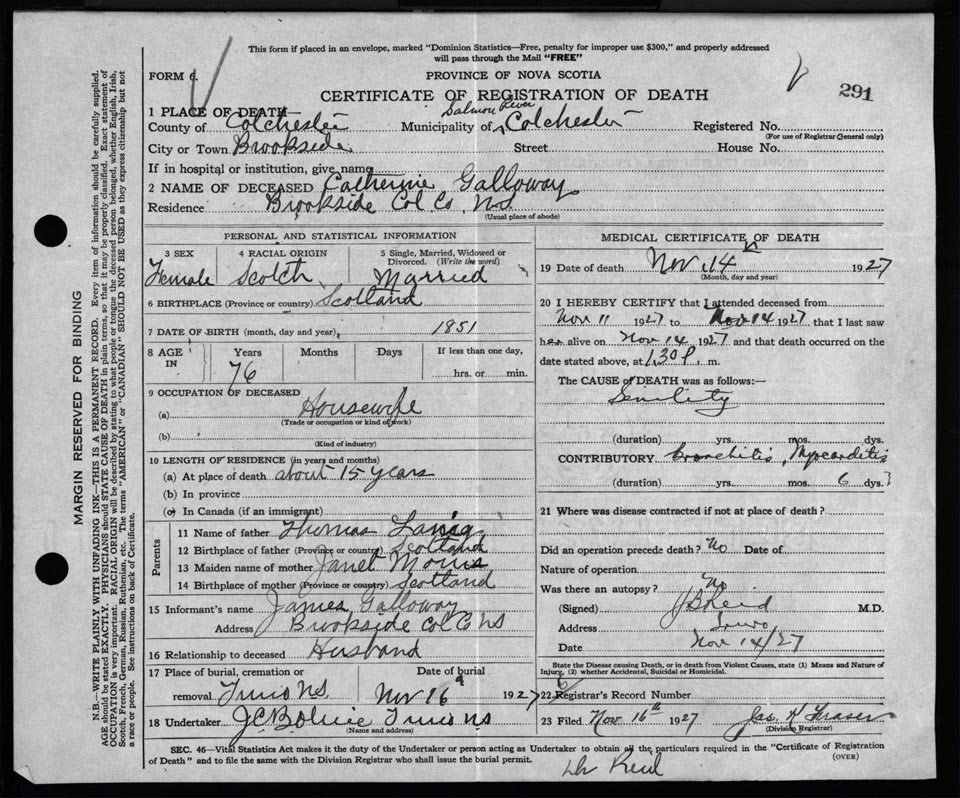 This form if placed in an envelope, marked "Dominion Statistics—Free, penalty for improper use $300," and properly addressed
will pass through the Mail "FREE"
FORM 6.
PROVINCE OF NOVA SCOTIA
291
CERTIFICATE OF REGISTRATION OF DEATH
1 PLACE OF DEATH—
Salmon River
County of Colchester Municipality of Colchester Registered No.
(For use of Registrar General only)
City or Town Brookside Street House No.
If in hospital or institution, give name
2 NAME OF DECEASED Catherine Galloway
Residence Brookside Col Co, NS
(Usual place of abode)
PERSONAL AND STATISTICAL INFORMATION
3 SEX 4 RACIAL ORIGIN 5 Single, Married, Widowed or
Divorced. (Write the word)
Female Scotch Married
6 BIRTHPLACE (Province or country) Scotland
7 DATE OF BIRTH (month, day and year) 1851
8 AGE IN Years Months Days If less than one day,
76 hrs. or min.
9 OCCUPATION OF DECEASED
(a) Housewife
(Trade or occupation or kind of work)
(b)
(Kind of industry)
10 LENGTH OF RESIDENCE (in years and months)
(a) At place of death about 15 years
(b) In province
(c) In Canada (if an immigrant)
Parents
11 Name of father Thomas
12 Birthplace of father (Province or country) Scotland
13 Maiden name of mother Janet Morris
14 Birthplace of mother (Province or country) Scotland
15 Informant's name James Galloway
Address Brookside Col Co NS
16 Relationship to deceased Husband
17 Place of burial, cremation or Date of burial
removal Truro NS. Nov 16 1927
18 Undertaker Truro NS
(Name and address)
MEDICAL CERTIFICATE OF DEATH
19 Date of death Nov. 14 1927
(Month, day and year)
20 I HEREBY CERTIFY that I attended deceased from
Nov 11 1927 to Nov 14 1927 that I last saw
her alive on Nov 14 1927 and that death occurred on the
date stated above, at 1.30 P. m.
The CAUSE of DEATH was as follows:—
Senility
(duration) yrs. mos. dys.
CONTRIBUTORY Bronchitis, Myocarditis
(duration) yrs. mos. 6 dys.
21 Where was disease contracted if not at place of death?
Did an operation precede death? No Date of
Nature of operation
Was there an autopsy? No
(Signed) Reid M.D.
Address Truro
Date Nov 14/27
State the Disease causing Death, or in death from Violent Causes, state (1) Means and Nature of
Injury, (2) whether Accidental, Suicidal or Homicidal.
22 Registrar's Record Number
23 Filed Nov 16th 1927 Jas. H Fraser
(Division Registrar)
SEC. 46—Vital Statistics Act makes it the duty of the Undertaker or person acting as Undertaker to obtain all the particulars required in the "Certificate of Registration
of Death" and to file the same with the Division Registrar who shall issue the burial permit.
(OVER)
Dr Reid
MARGIN RESERVED FOR BINDING
N.B.—WRITE PLAINLY WITH UNFADING INK—THIS IS A PERMANENT RECORD. Every item of information should be carefully supplied.
AGE should be stated EXACTLY. PHYSICIANS should STATE CAUSE OF DEATH in plain terms, so that it may be properly classified. Exact statement of
OCCUPATION is very important. RACIAL ORIGIN will be described by stating to what people or tongue the deceased person belonged, whether English, Irish,
Scotch, French, German, Russian, Ruthenian, etc. The terms "AMERICAN" or "CANADIAN" SHOULD NOT BE USED as they express citizenship but not
a race or people. See instructions on back of Certificate.